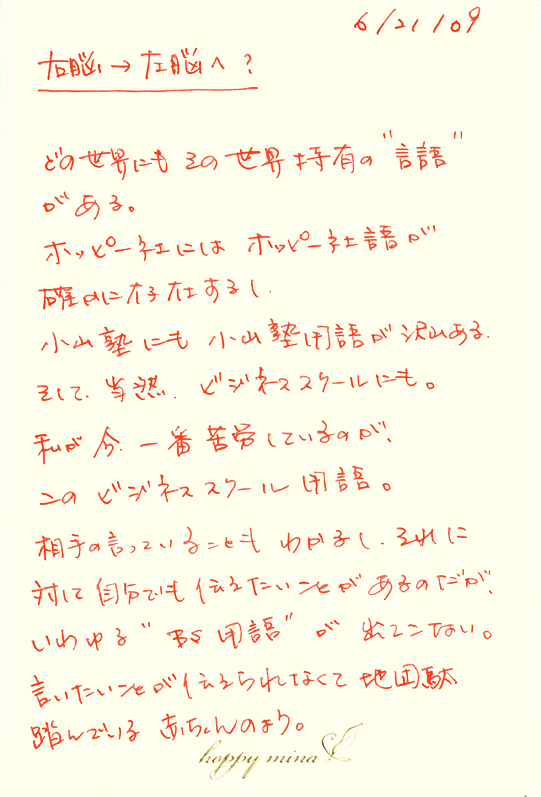 6/21/09
右脳→左脳へ?
どの世界にもその世界特有の“言語”
がある。
ホッピー社にはホッピー社語が
確かに存在するし、
小山塾にも小山塾用語が沢山ある。
そして、当然、ビジネススクールにも。
私が今、一番苦労しているのが、
このビジネススクール用語。
相手の言っていることもわかるし、それに
対して自分でも伝えたいことがあるのだが、
いわゆる“BS用語”が出てこない。
言いたいことが伝えられなくて地団駄
踏んでいる赤ちゃんのよう。
hoppy mina